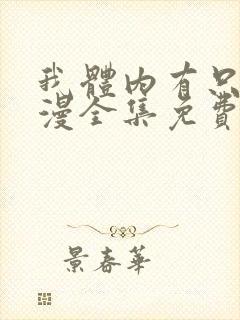 我體內有只
漫全集免費
景春華